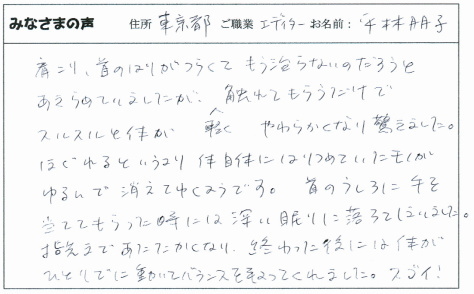 みなさまの声 住所 東京都 ご職業 エディター お名前： 平林朋子
肩こり、首のはりがつらくて もう治らないのだろうと
あきらめていましたが、触れてもらうだけで
スルスルと体が 軽く やわらかくなり驚きました。
ほぐれるというより 体自体にはりつめていたモノが
ゆるんで 消えてゆくようです。 首のうしろに手を
当ててもらった時には深い眠りに落ちてしまいました。
指先まであたたかくなり、終わった後には体が
ひとりでに動いてバランスを整ってくれました。スゴイ！